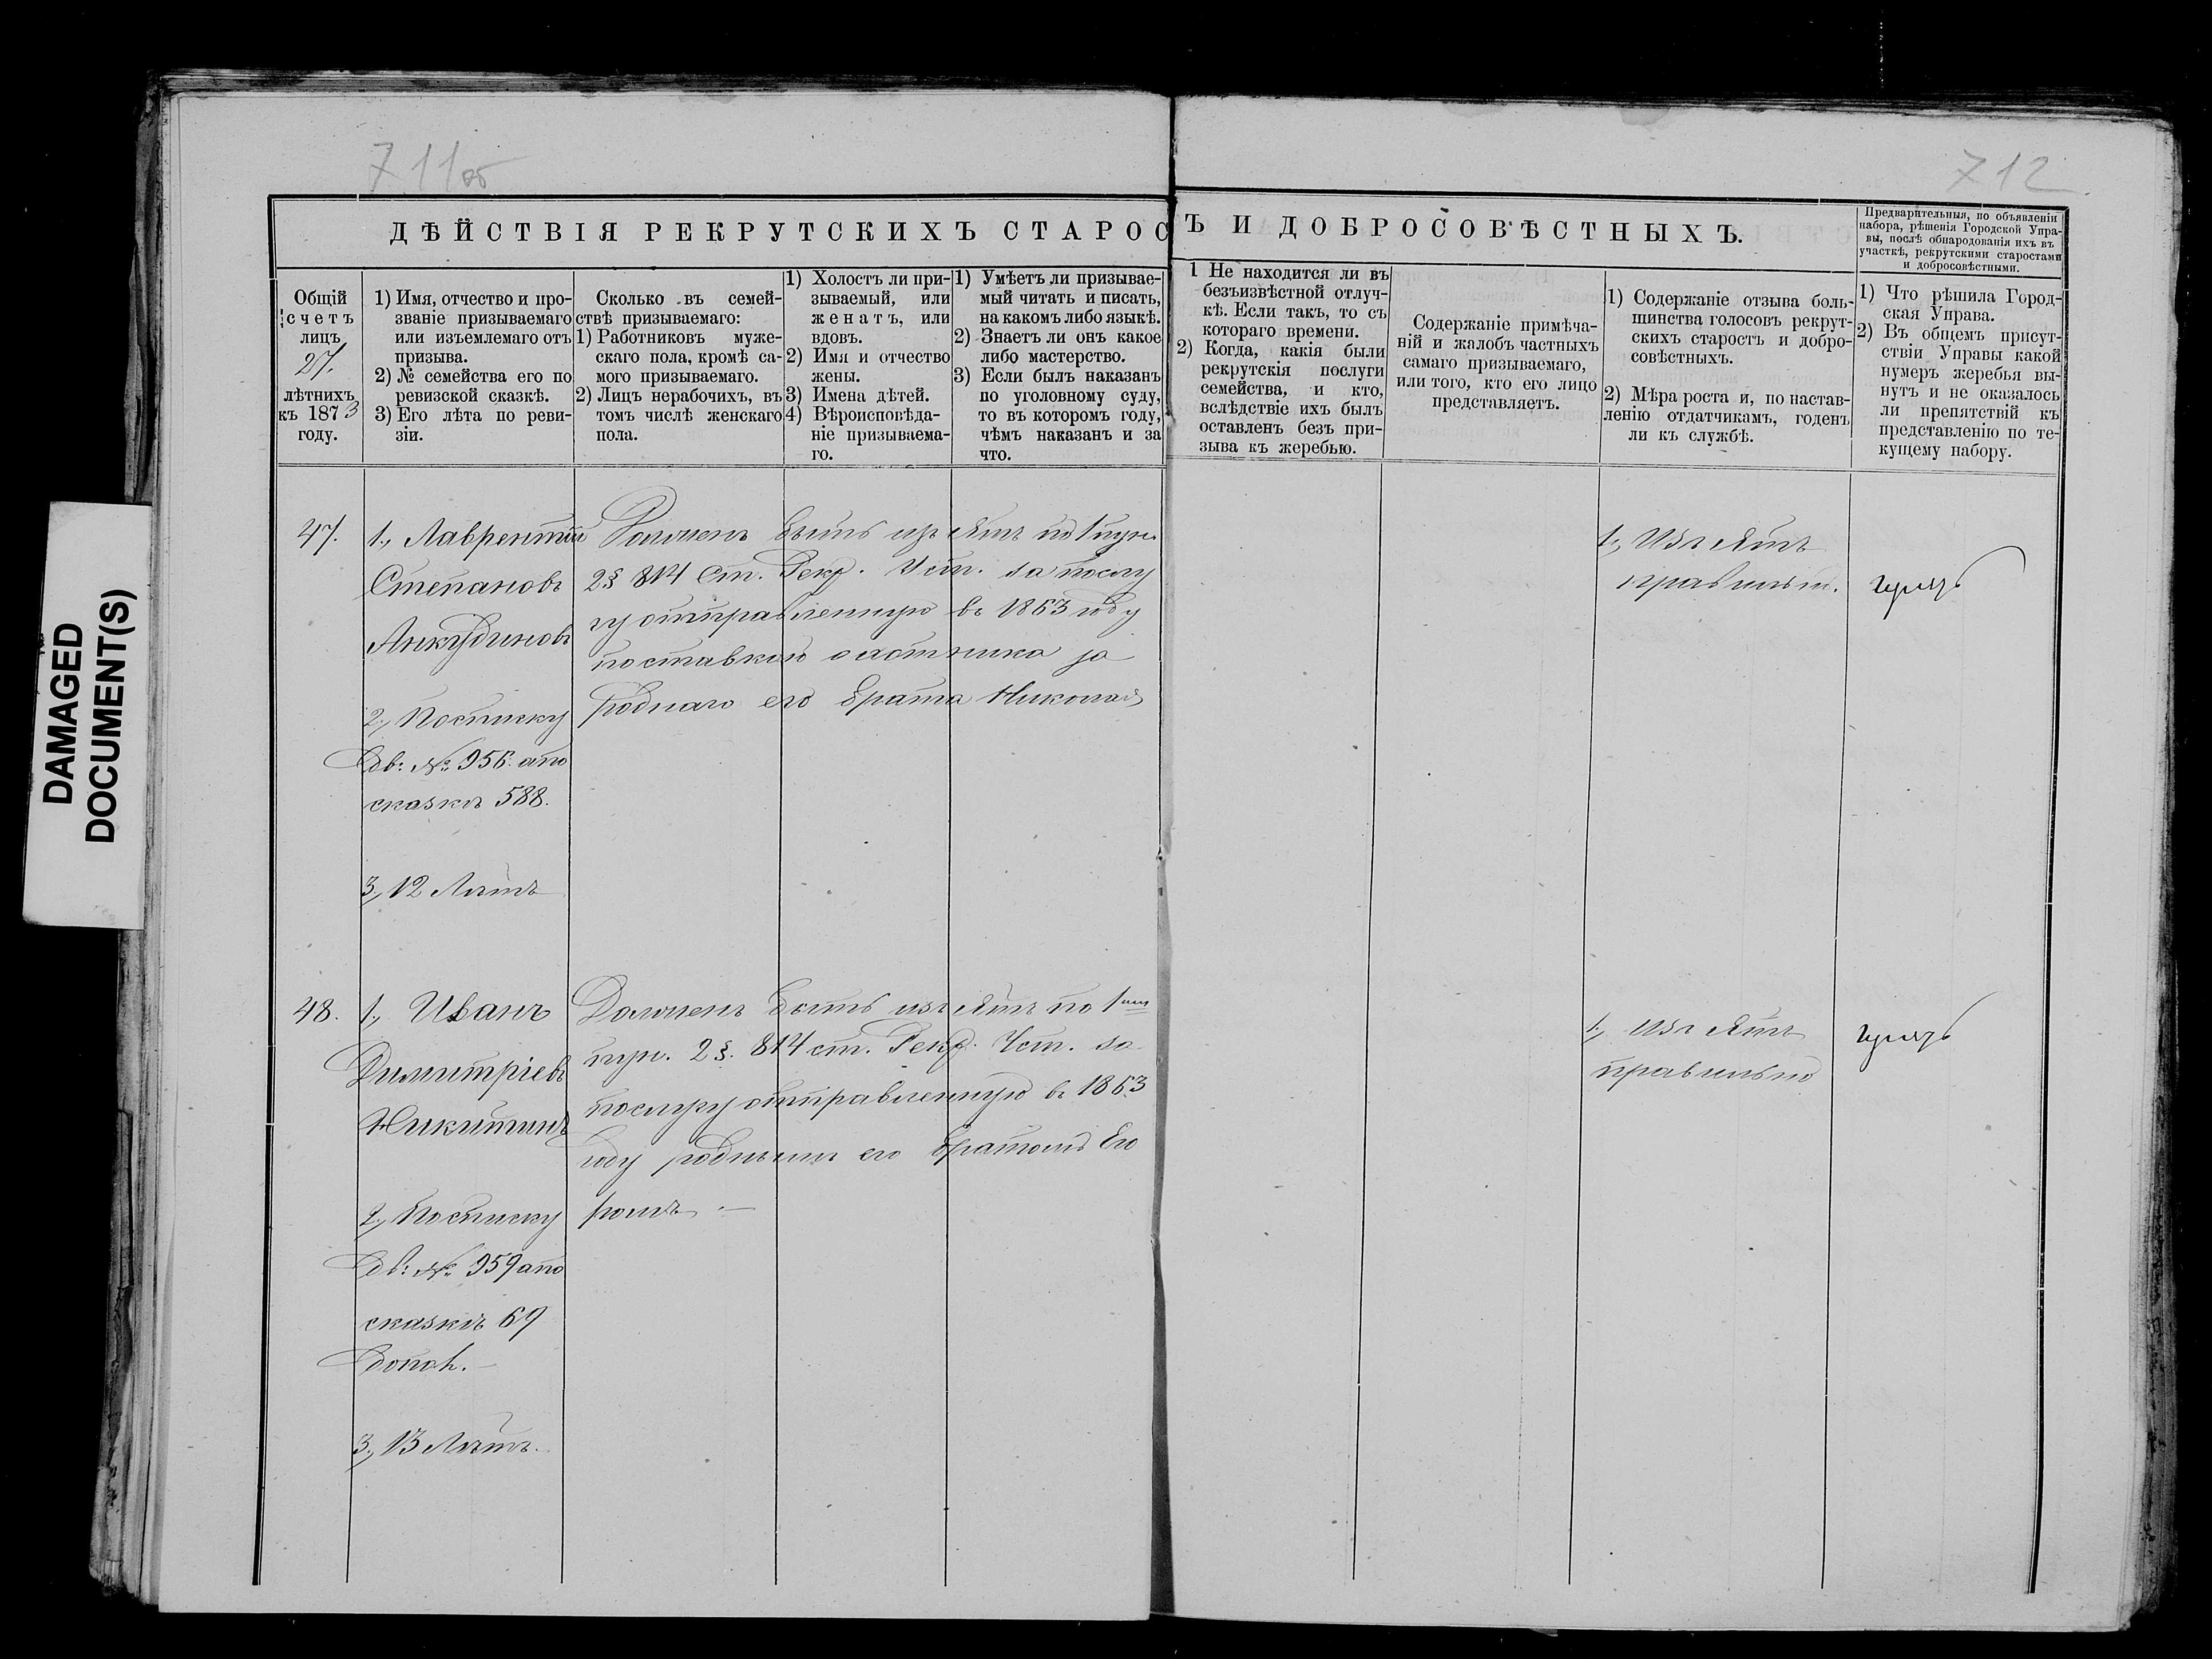 DAMAGED
DOCUMENT(S)
711об
712
ДѢЙСТВІЯ РЕКРУТСКИХЪ СТАРОСТЪ И ДОБРОСОВѢСТНЫХЪ.
Предварительныя, по объявленіи
набора, рѣшенія Городской Упра-
вы, послѣ обнародованія ихъ въ
участкѣ, рекрутскими старостами
и добросовѣстными.
Общій
счетъ
лицъ
27.
лѣтнихъ
къ 1873
году.
1) Имя, отчество и про-
званіе призываемаго
или изъемлемаго отъ
призыва.
2) № семейства его по
ревизской сказкѣ.
3) Его лѣта по реви-
зіи.
Сколько въ семей-
ствѣ призываемаго:
1) Работниковъ муже-
скаго пола, кромѣ са-
мого призываемаго.
2) Лицъ нерабочихъ, въ
томъ числѣ женскаго
пола.
1) Холостъ ли при-
зываемый, или
женатъ, или
вдовъ.
2) Имя и отчество
жены.
3) Имена дѣтей.
4) Вѣроисповѣда-
ніе призываема-
го.
1) Умѣетъ ли призывае-
мый читать и писать,
на какомъ либо языкѣ.
2) Знаетъ ли онъ какое
либо мастерство.
3) Если былъ наказанъ
по уголовному суду,
то въ которомъ году,
чѣмъ наказанъ и за
что.
1 Не находится ли въ
безъизвѣстной отлуч-
кѣ. Если такъ, то съ
котораго времени.
2) Когда, какія были
рекрутскія послуги
семейства, и кто,
вслѣдствіе ихъ былъ
оставленъ безъ при-
зыва къ жеребью.
Содержаніе примѣча-
ній и жалобъ частныхъ
самаго призываемаго,
или того, кто его лицо
представляетъ.
1) Содержаніе отзыва боль-
шинства голосовъ рекрут-
скихъ старостъ и добро-
совѣстныхъ.
2) Мѣра роста и, по настав-
ленію отдатчикамъ, годенъ
ли къ службѣ.
1) Что рѣшила Город-
ская Управа.
2) Въ общемъ присут-
ствіи Управы какой
нумеръ жеребья вы-
нутъ и не оказалось
ли препятствій къ
представленію по те-
кущему набору.
47.
1., Лаврентій
Степановъ
Анкудиновъ
2., По списку
Дв: № 956. а по
сказкѣ 588.
3., 12 Лѣтъ
Должен быть изъятъ по 1 пун.
2 § 814 Ст. Рекр. Уст. за послу
гу отправленную въ 1863 году
поставкою охотника за
роднаго его брата Николая
1., Изъятъ
правильно.
48.
1., Иванъ
Димитріевъ
Никитинъ
2., По списку
Дв: № 959 а по
сказкѣ 69
допол.
3., 13 Лѣтъ.
Долженъ быть изъятъ по 1му
пун. 2 §. 814 ст. Рекр. Уст. за
послугу отправленную въ 1863
году роднымъ его братомъ Его
ромъ. —
1., Изъятъ
правильно